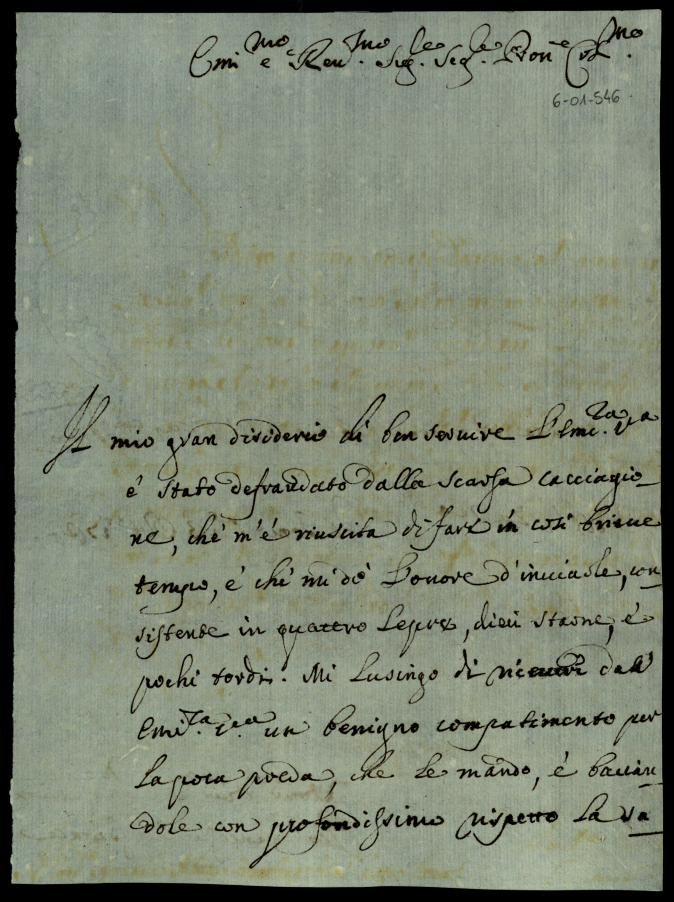 Emi.mo e Reu.mo Sig.le Seg.le Pron.e Col.mo
6-01-546
Il mio gran disiderio di ben seruire l'Emi.za V.a
é stato defraudato dalla scarsa cacciagio
ne, ché m'é riuscita di fare in cosi brieue
tempo, é ché mi dò l'onore d'inuiarle, con
sistente in quattro Lepre, dieci starne, é
pochi tordi. Mi lusingo di riceuere dall'
Emi.za V.a un benigno compatimento per
la poca preda, che le mando, é bacian
dole con profondissimo rispetto la sa